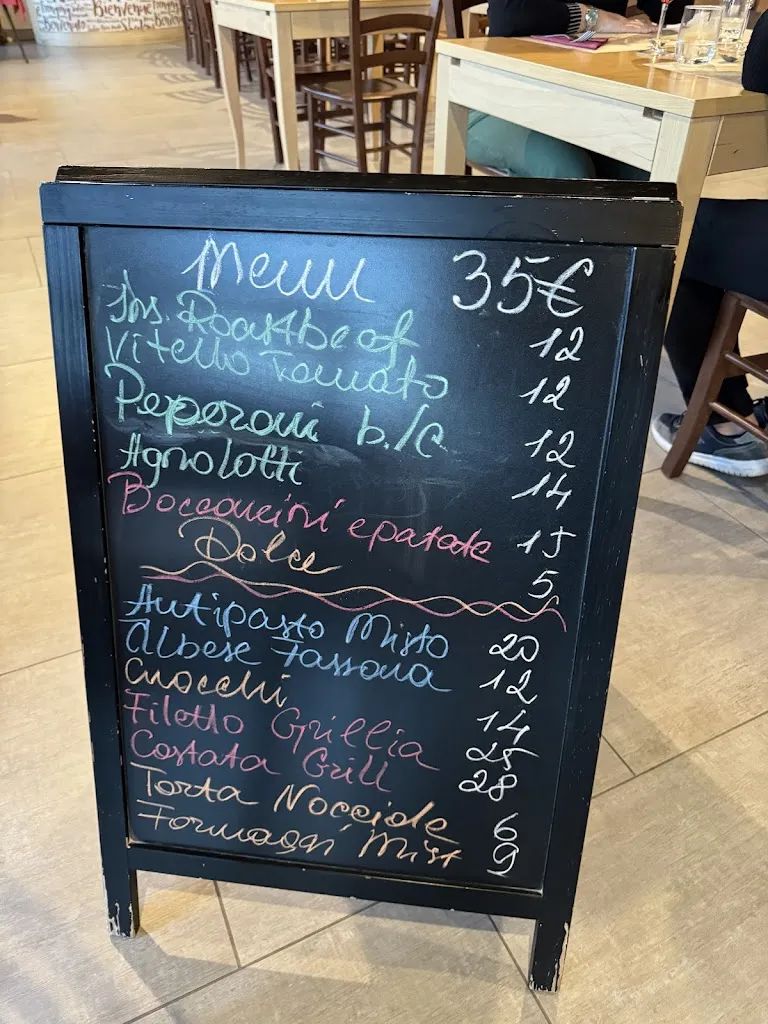 Bienvenue
Menu 35€
Ins. Roastbeof 12
Vitello Tomato 12
Peperoni b./c 12
Agnolotti 14
Bocconcini e patate 15
Dolce 5
Antipasto Misto 20
Albese Fassona 12
Gnocchi 14
Filetto Grillia 25
Costata Grill 28
Torta Nocciole 6
Formaggi Mist 9